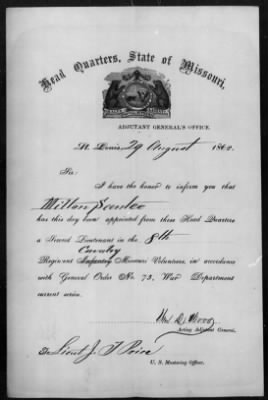 Head Quarters, State of Missouri,
ADJUTANT GENERAL'S OFFICE.
St. Louis 29 August 186
Sir:
I have the honor to inform you that
Milton
has this day been appointed from these Head Quarters
a Second Lieutenant in the 8th
Cavalry
Regiment Infantry Missouri Volunteers, in accordance
with General Order No. 73, War Department
current series.
Acting Adjutant General.
To Lieut J. T. Price
U. S. Mustering Officer.